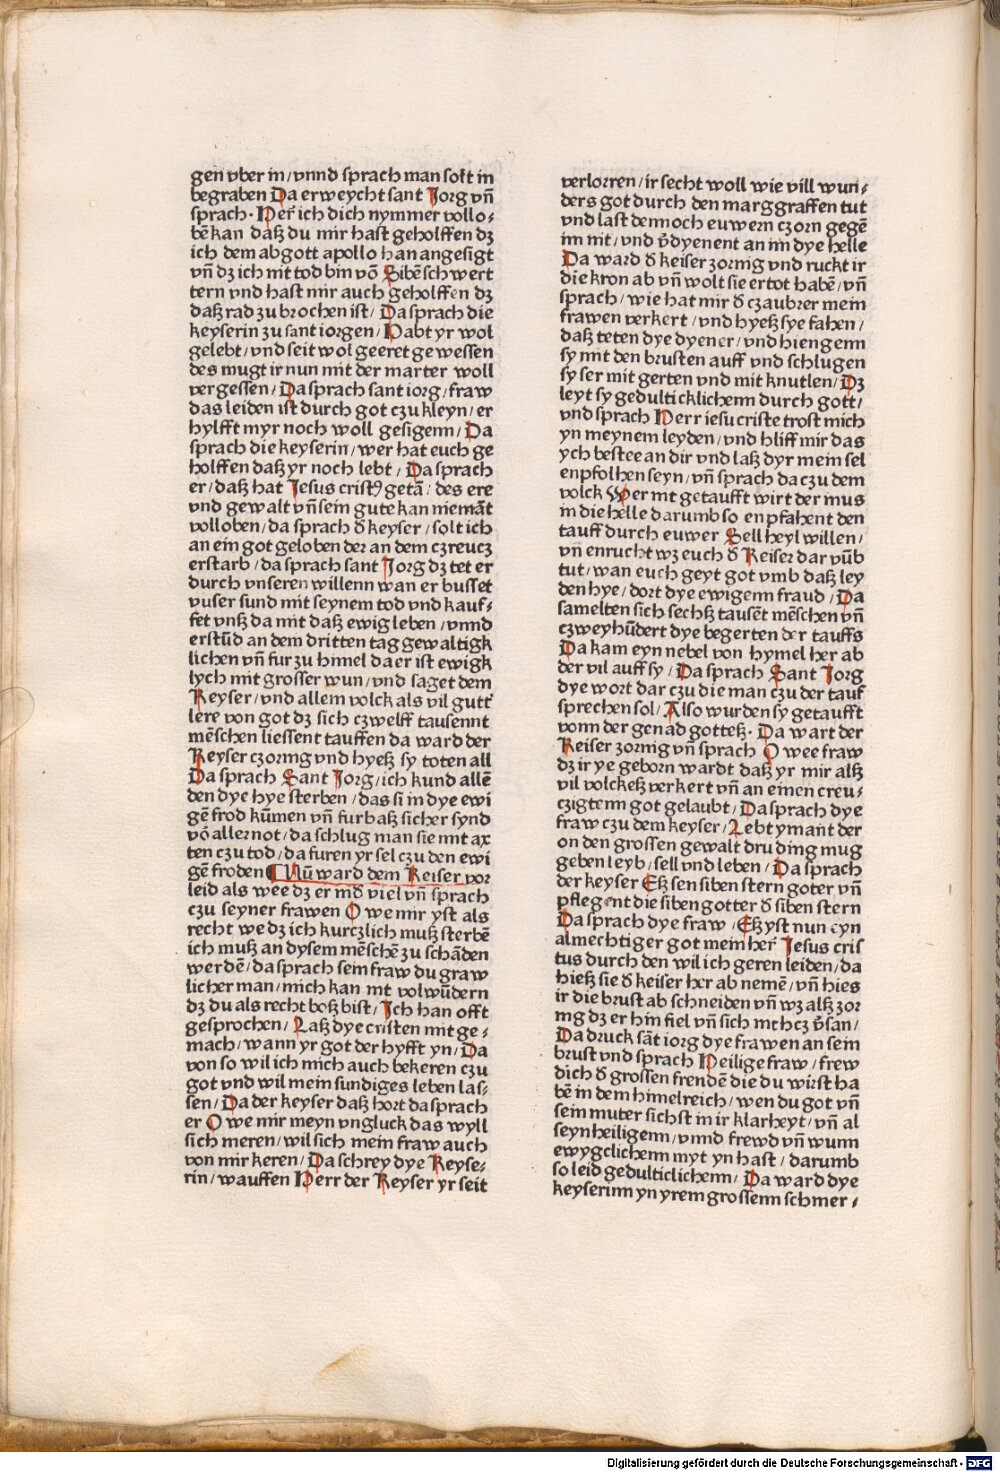 gen vber in/vnnd sprach man solt in
begraben Da erweycht sant Jorg vn̄
sprach· Her̄ ich dich nymmer vollo⸗
bē kan daß du mir hast geholffen dz
ich dem abgott apollo han angesigt
vn̄ dz ich nit tod bin võ Sibē schwert
tern vnd hast mir auch geholffen dz
daß rad zu brochen ist/ Da sprach die
keyserin zu sant iorgen/ Habt yr wol
gelebt/vnd seit wol geeret gewessen
des mugt ir nun mit der marter woll
vergessen/ Da sprach sant iorg/fraw
das leiden ist durch got czu kleyn/er
hylfft myr noch woll gesigenn/ Da
sprach die keyserin/wer hat euch ge
holffen daß yr noch lebt/ Da sprach
er/daß hat Jesus cristꝰ getā/ des ere
vnd gewalt vn̄ sein gute kan niemāt
volloben/da sprach d̄ keyser/solt ich
an ein got geloben der an dem czreucz
erstarb/da sprach sant Jorg dz tet er
durch vnseren willenn wan er busset
vuser sund mit seynem tod vnd kauf⸗
fet vnß da mit daß ewig leben/vnnd
erstūd an dem dritten tag gewaltigk
lichen vn̄ fur zu himel da er ist ewigk
lych mit grosser wun/vnd saget dem
Keyser/vnd allem volck als vil gutt̄
lere von got dz sich czwelff tausennt
mēschen liessent tauffen da ward der
Keyser czornig vnd hyeß sy toten all
Da sprach Sant Jorg/ich kund allē
den dye hye sterben/das si in dye ewi
gē frod kūmen vn̄ furbaß sicher synd
võ aller not/da schlug man sie mit ax
ten czu tod/da furen yr sel czu den ewi
gē froden Nū ward dem Keiser vor
leid als wee dz er md̄ viel vn̄ sprach
czu seyner frawen O we mir yst als
recht we dz ich kurczlich muß sterbē
ich muß an dysem mēschē zu schāden
werdē/da sprach sein fraw du graw
licher man/mich kan nit volwūdern
dz du als recht boß bist/ Ich han offt
gesprochen/ Laß dye cristen mit ge⸗
mach/wann yr got der hyfft yn/ Da
von so wil ich mich auch bekeren czu
got vnd wil mein sundiges leben las⸗
sen/ Da der keyser daß hort da sprach
er O we mir meyn vngluck das wyll
sich meren/wil sich mein fraw auch
von mir keren/ Da schrey dye Keyse⸗
rin/wauffen Herr der Keyser yr seit
verlorren/ir secht woll wie vill wun⸗
ders got durch den marggraffen tut
vnd last dennoch euwern czorn gegē
im nit/vnd v̄dyenent an im dye helle
Da ward d̄ keiser zornig vnd ruckt ir
die kron ab vn̄ wolt sie ertot habē/vn̄
sprach/wie hat mir d̄ czaubrer mein
frawen verkert/vnd hyeß sye fahen/
daß teten dye dyener/vnd hiengenn
sy mit den brusten auff vnd schlugen
sy ser mit gerten vnd mit knutlen/ Dz
leyt sy gedulticklichenn durch gott/
vnd sprach Herr iesu criste trost mich
yn meynem leyden/vnd hliff mir das
ych bestee an dir vnd laß dyr mein sel
enpfolhen seyn/vn̄ sprach da czu dem
volck Wer nit getaufft wirt der mus
in die helle darumb so enpfahent den
tauff durch euwer Sell heyl willen/
vn̄ enrucht wz euch d̄ Keiser dar vūb
tut/wan euch geyt got vmb daß ley
den hye/dort dye ewigenn fraud/ Da
samelten sich sechß tausēt mēschen vn̄
czweyhūdert dye begerten der tauffs
Da kam eyn nebel von hymel her ab
der vil auff sy/ Da sprach Sant Jorg
dye wort dar czu die man czu der tauf
sprechen sol/ Also wurden sy getaufft
vonn der genad gotteß· Da wart der
Keiser zornig vn̄ sprach O wee fraw
dz ir ye geborn wardt daß yr mir alß
vil volckeß verkert vn̄ an einen creu⸗
czigtenn got gelaubt/ Da sprach dye
fraw czu dem keyser/ Lebt ymant der
on den grossen gewalt dru ding mug
geben leyb/sell vnd leben/ Da sprach
der keyser Eß sen siben stern goter vn̄
pflegent die siben gotter d̄ siben stern
Da sprach dye fraw/ Eß yst nun eyn
almechtiger got mein her̄ Jesus cris
tus durch den wil ich geren leiden/da
hieß sie d̄ keiser her ab nemē/vn̄ hies
ir die brust ab schneiden vn̄ wz alß zor
nig dz er hin fiel vn̄ sich nit hcz v̄san/
Da druck sāt iorg dye frawen an sein
brust vnd sprach Heilige fraw/frew
dich d̄ grossen frendē die du wirst ha
bē in dem himelreich/wen du got vn̄
sein muter sichst in ir klarheyt/vn̄ al
seyn heiligenn/vnnd frewd vn̄ wunn
ewygclichenn myt yn hast/darumb
so leid gedulticlichenn/ Da ward dye
keyserinn yn yrem grossenn schmer⸗
Digitalisierung gefördert durch die Deutsche Forschungsgemeinschaft - DFG